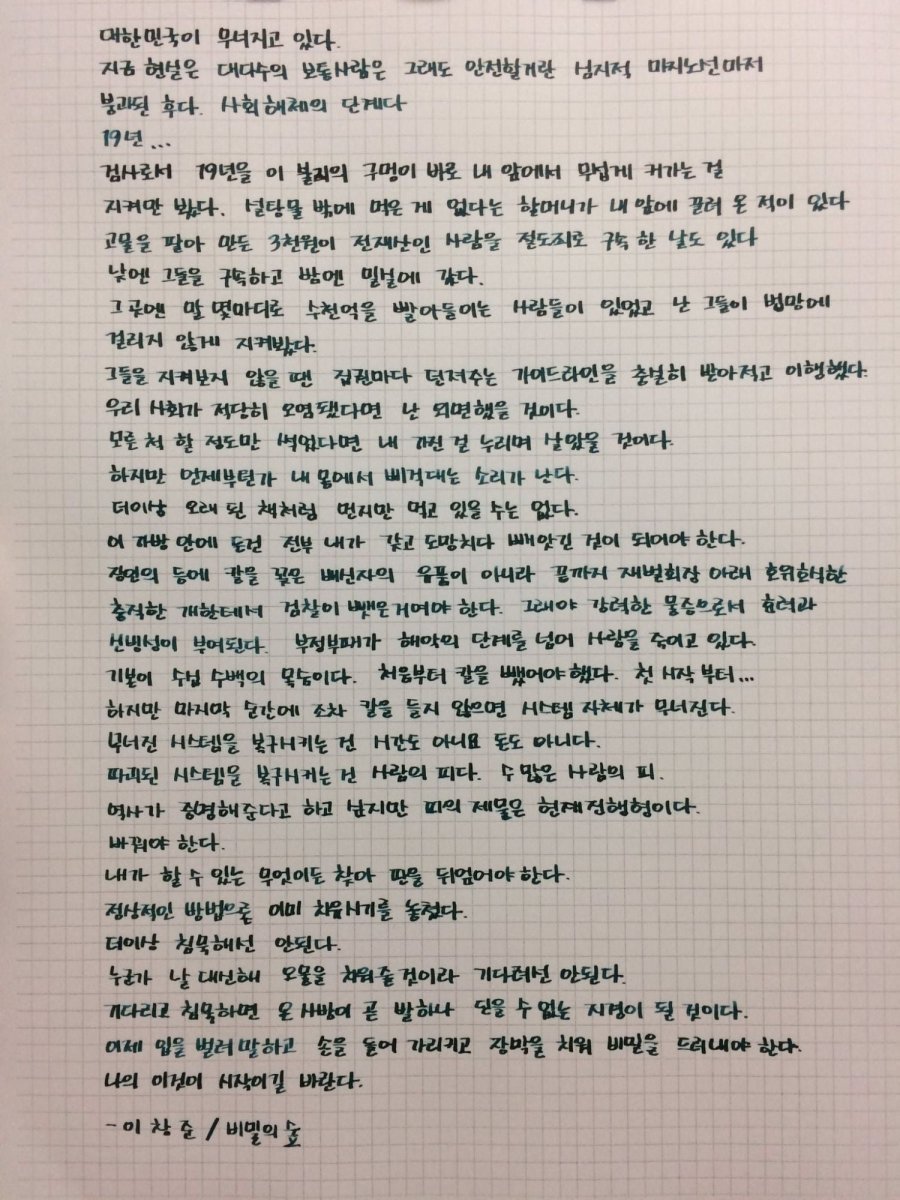 대한민국이 무너지고 있다.
지금 현실은 대다수의 보통사람은 그래도 안전할거란 심지적 마지노선마저
붕괴된 후다. 사회해체의 단계다
19년...
검사로서 19년을 이 붉지의 구멍이 바로 내 앞에서 무섭게 커가는 걸
지켜만 봤다. 설탕물 밖에 먹은 게 없다는 할머니가 내 앞에 끌려 온 적이 있다
고물을 팔아 만든 3천원이 전재산인 사람을 절도죄로 구속 한 날도 있다
낮엔 그들을 구속하고 밤엔 밀실에 갔다.
그곳엔 말 몇마디로 수천억을 빨아들이는 사람들이 있었고 난 그들이 법망에
걸리지 않게 지켜봤다.
그들을 지켜보지 않을 땐 정권마다 던져주는 가이드라인을 충실히 받아적고 이행했다.
우리 사회가 적당히 오염됐다면 난 외면했을 것이다.
모른 척 할 정도만 썩었다면 내 가진 걸 누리며 살았을 것이다.
하지만 언제부턴가 내 몸에서 삐걱대는 소리가 난다.
더이상 오래 된 책처럼 먼지만 먹고 있을 수는 없다.
이 가방 안에 든건 전부 내가 갖고 도망치다 빼앗긴 것이 되어야 한다.
장인의 등에 칼을 꽂은 배신자의 유품이 아니라 끝까지 재벌회장 아래 호위호식한
충직한 개한테서 검찰이 뺏은거여야 한다. 그래야 강력한 물증으로서 효력과
신빙성이 부여된다. 부정부패가 해악의 단계를 넘어 사람을 죽이고 있다.
기본이 수십 수백의 목숨이다. 처음부터 칼을 뺐어야 했다. 첫 시작 부터...
하지만 마지막 순간에 조차 칼을 들지 않으면 시스템 자체가 무너진다.
무너진 시스템을 복구시키는 건 시간도 아니요 돈도 아니다.
파괴된 시스템을 복구시키는 건 사람의 피다. 수 많은 사람의 피.
역사가 증명해준다고 하고 싶지만 피의 제물은 현재진행형이다.
바꿔야 한다.
내가 할 수 있는 무엇이든 찾아 판을 뒤엎어야 한다.
정상적인 방법으론 이미 치유시기를 놓쳤다.
더이상 침묵해선 안된다.
누군가 날 대신해 오물을 치워줄 것이라 기다려선 안된다.
기다리고 침묵하면 온 사방이 곧 발하나 딛을 수 없는 지경이 될 것이다.
이제 입을 벌려 말하고 손을 들어 가리키고 장막을 치워 비밀을 드러내야 한다.
나의 이것이 시작이길 바란다.
- 이 창 준 / 비밀의 숲